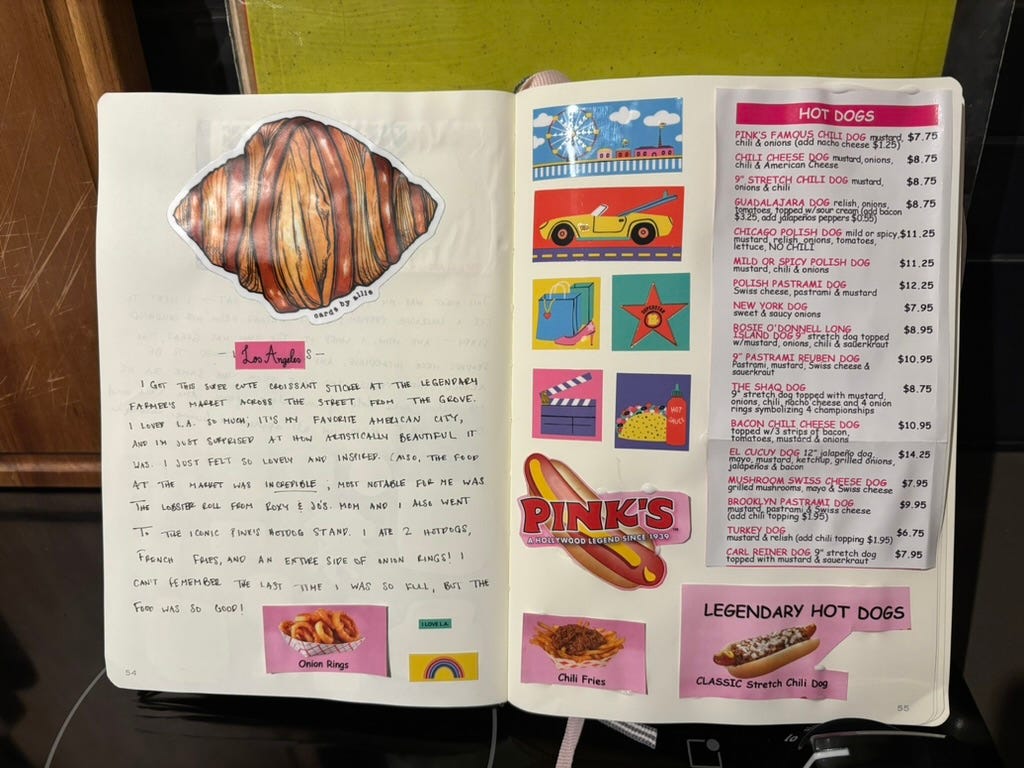 cards by
Los Angeles
I GOT THIS SUPER CUTE CROISSANT STICKER AT THE LEGENDARY
FARMER'S MARKET ACROSS THE STREET FROM THE GROVE.
I LOVED L.A. SO MUCH; IT'S MY FAVORITE AMERICAN CITY,
AND I'M JUST SURPRISED AT HOW ARTISTICALLY BEAUTIFUL IT
WAS. I JUST FELT SO LOVELY AND INSPIRED. (ALSO, THE FOOD
AT THE MARKET WAS INCREDIBLE; MOST NOTABLE FOR ME WAS
THE LOBSTER ROLL FROM ROXY & JO'S. MOM AND I ALSO WENT
TO THE ICONIC PINK'S HOTDOG STAND. I ATE 2 HOTDOGS,
FRENCH FRIES, AND AN ENTIRE SIDE OF ONION RINGS! I
CAN'T REMEMBER THE LAST TIME I WAS SO FULL, BUT THE
FOOD WAS SO GOOD!
Onion Rings
I LOVE L.A.
54
SUPERSTAR
HOT
SAUCE
PINK'S
A HOLLYWOOD LEGEND SINCE 1939
Chili Fries
HOT DOGS
PINK'S FAMOUS CHILI DOG mustard, $7.75
chili & onions (add nacho cheese $1.25)
CHILI CHEESE DOG mustard, onions, $8.75
chili & American Cheese
9" STRETCH CHILI DOG mustard, $8.75
onions & chili
GUADALAJARA DOG relish, onions, $8.75
tomatoes, topped w/sour cream (add bacon
$3.25, add jalapeños peppers $0.55)
CHICAGO POLISH DOG mild or spicy, $11.25
mustard, relish, onions, tomatoes,
lettuce, NO CHILI
MILD OR SPICY POLISH DOG $11.25
mustard, chili & onions
POLISH PASTRAMI DOG $12.25
Swiss cheese, pastrami & mustard
NEW YORK DOG $7.95
sweet & saucy onions
ROSIE O'DONNELL LONG $8.95
ISLAND DOG 9" stretch dog topped
w/mustard, onions, chili & sauerkraut
9" PASTRAMI REUBEN DOG $10.95
Pastrami, mustard, Swiss cheese &
sauerkraut
THE SHAQ DOG $8.75
9" stretch dog topped with mustard,
onions, chili, nacho cheese and 4 onion
rings symbolizing 4 championships
BACON CHILI CHEESE DOG $10.95
topped w/3 strips of bacon,
tomatoes, mustard & onions
EL CUCUY DOG 12" jalapeño dog, $14.25
mayo, mustard, ketchup, grilled onions,
jalapeños & bacon
MUSHROOM SWISS CHEESE DOG $7.95
grilled mushrooms, mayo & Swiss cheese
BROOKLYN PASTRAMI DOG $9.95
mustard, pastrami & Swiss cheese
(add chili topping $1.95)
TURKEY DOG $6.75
mustard & relish (add chili topping $1.95)
CARL REINER DOG 9" stretch dog $7.95
topped with mustard & sauerkraut
LEGENDARY HOT DOGS
CLASSIC Stretch Chili Dog
55